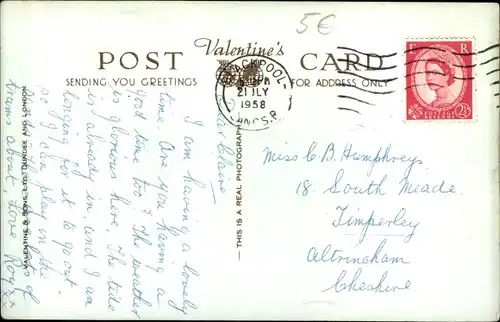 5€
Valentine's
POST CARD
SENDING YOU GREETINGS
FOR ADDRESS ONLY
21 JLY
1958
R
2½
Dear Claire
I am having a lovely
time. Are you having a
good time too? The weather
is glorious here. The tide
is already in, and I am
longing for it to go out
so I can play in the
sands. There are lots of
trams about. Love Roy xx
— THIS IS A REAL PHOTOGRAPH
VALENTINE & SONS, LTD. DUNDEE AND LONDON
Miss C. B. Humphreys
18 South Meade
Timperley
Altrincham
Cheshire